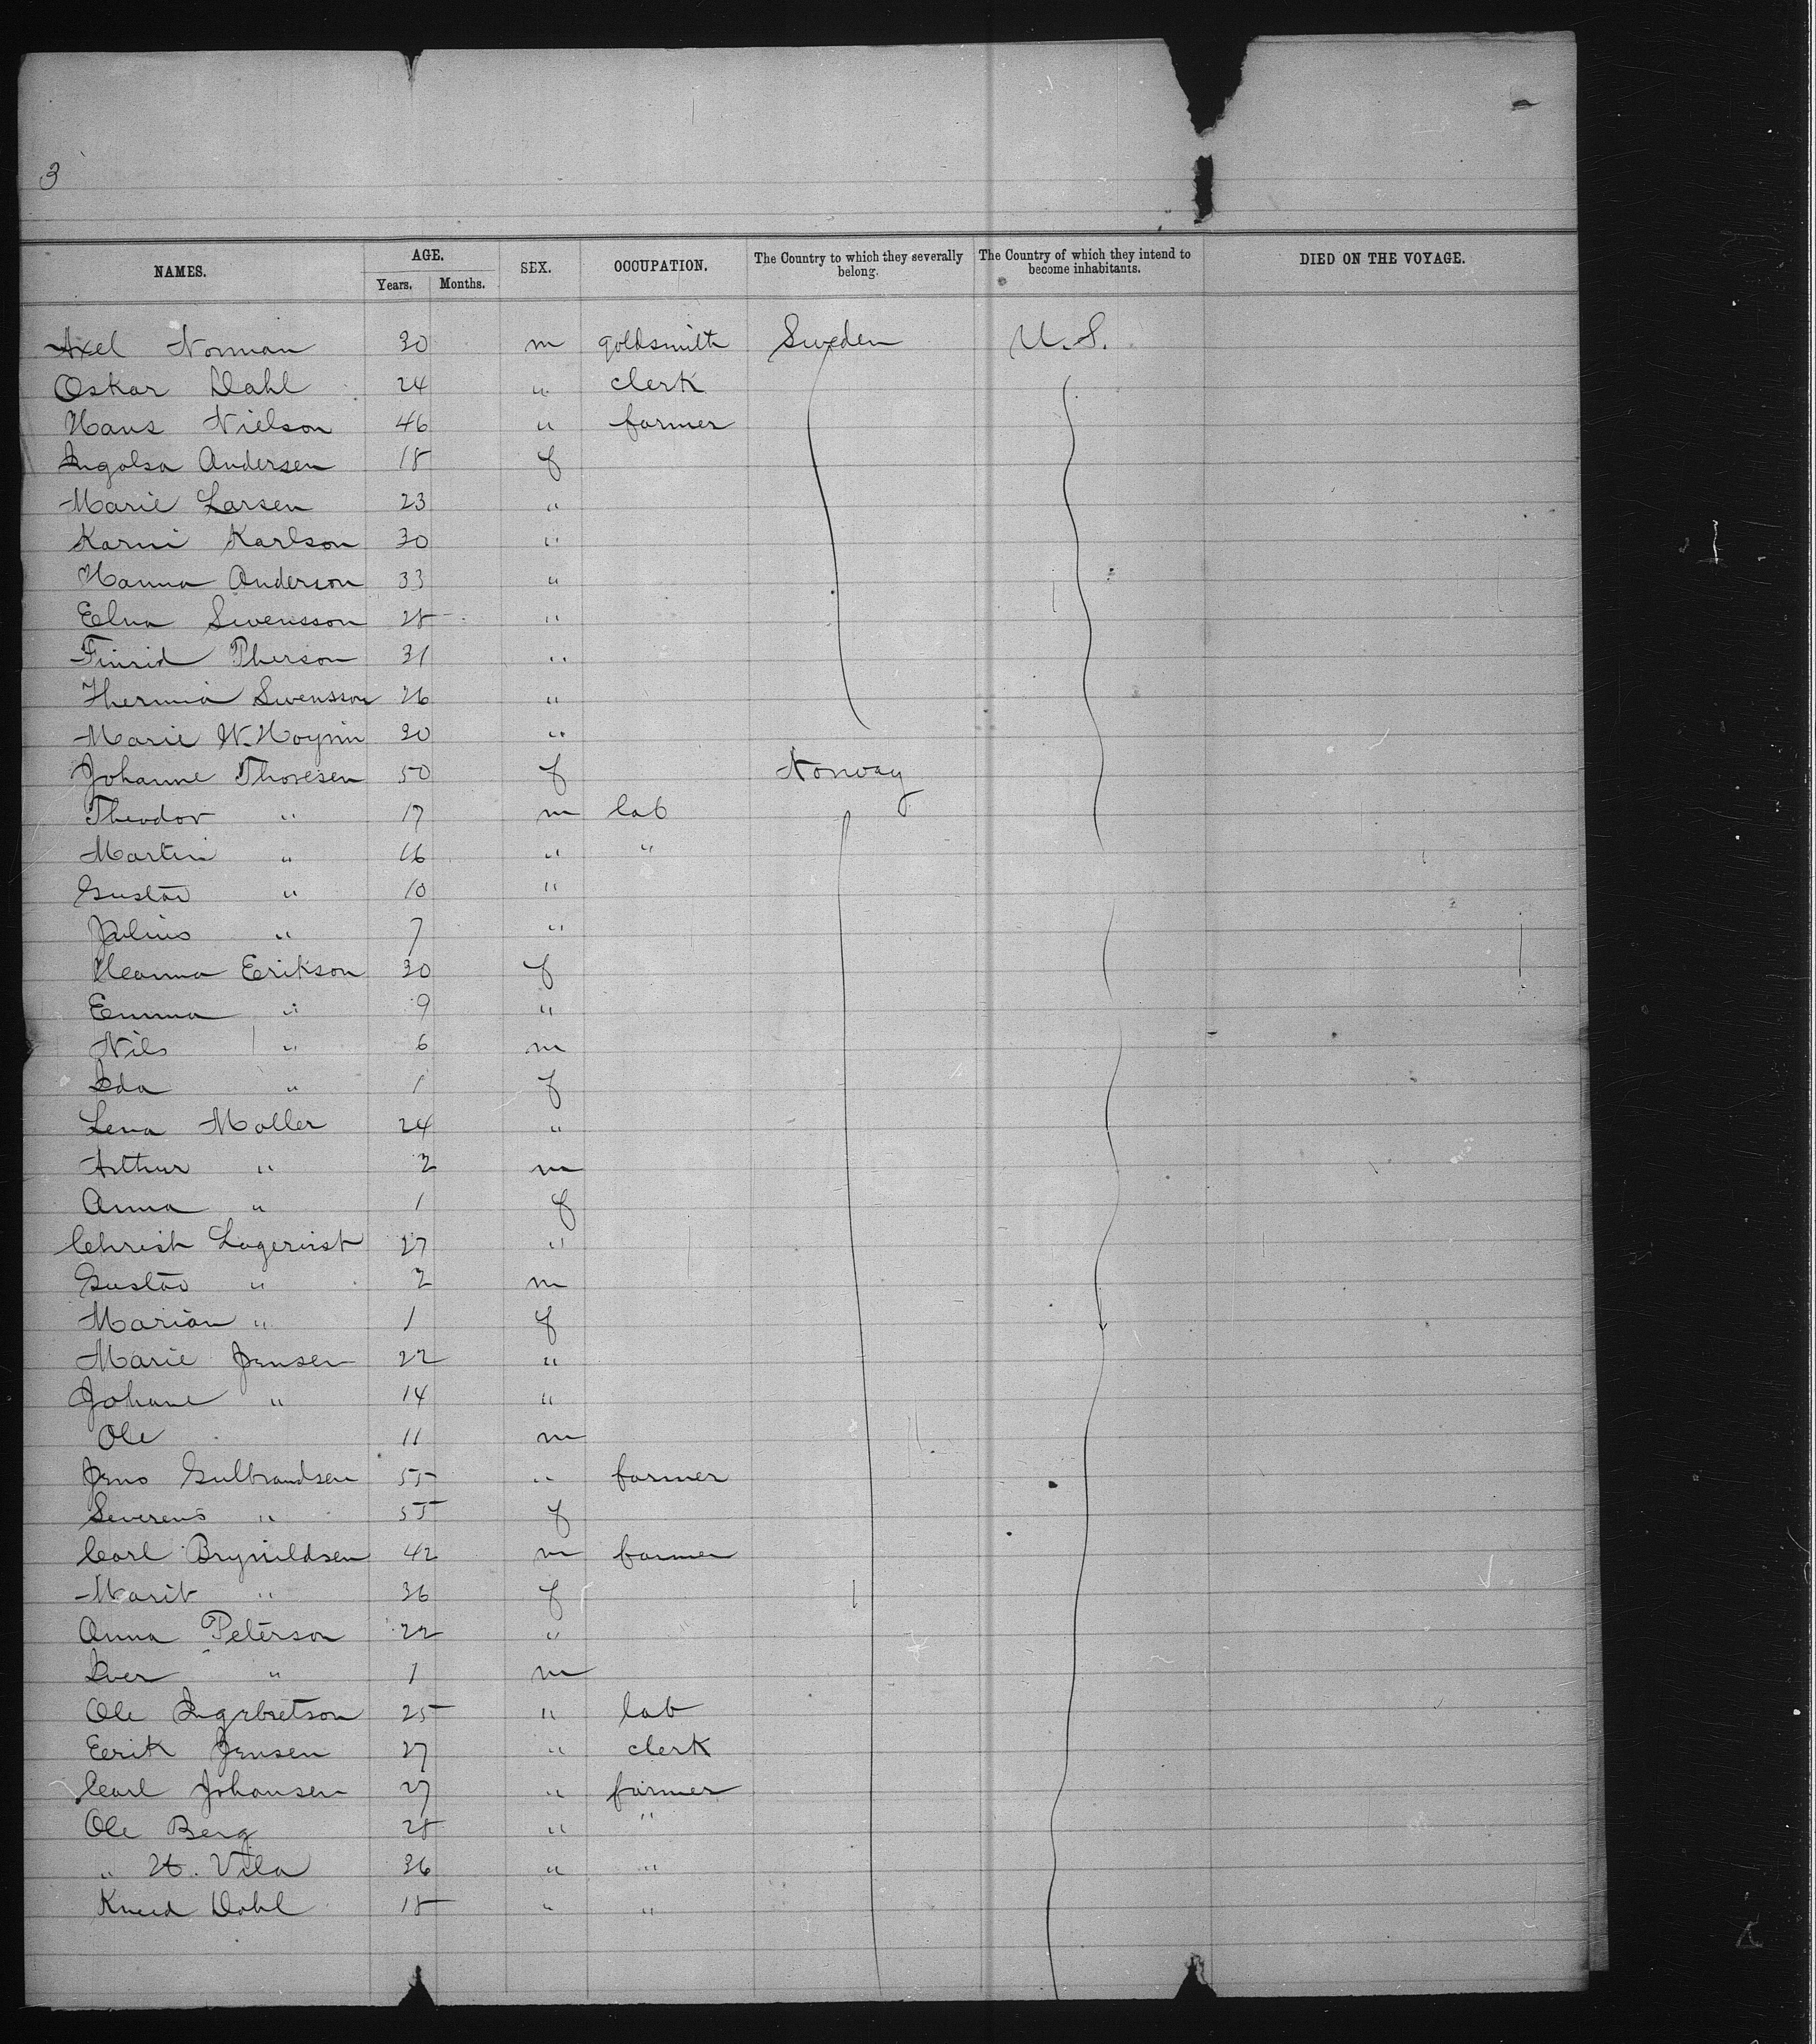 3
NAMES. AGE. Years. Months. SEX. OCCUPATION. The Country to which they severally belong. The Country of which they intend to become inhabitants. DIED ON THE VOYAGE.
Axel Norman 30 m goldsmith Sweden U.S.
Oskar Dahl 24 " clerk
Hans Nielson 46 " farmer
Andersen 18 f
Marie Larsen 23 "
Karni Karlson 30 "
Hanna Anderson 33 "
Elna Swensson 28 "
Pherson 31 "
Swensson 26 "
Marie 20 "
Johanne Thoresen 50 f Norway
Theodor " 17 m lab
Martin " 16 " "
Gustav " 10 "
Julius " 7 "
Erikson 30 f
Emma " 9 "
Nils " 6 m
Ida " 1 f
Lena Moller 24 "
Arthur " 2 m
Anna " 1 f
Christ 27 "
Gustav " 2 m
Marian " 1 f
Marie Jensen 22 "
Johane " 14 "
Ole 11 m
Jens Gulbrandsen 55 " farmer
Severens " 55 f
Carl Brynildsen 42 m farmer
Marit " 36 f
Anna Peterson 22 "
Iver " 1 m
Ole Ingebretson 25 " lab
Eerik Jensen 27 " clerk
Carl Johansen 27 " farmer
Ole Berg 28 " "
" H. Vila 36 " "
Knud Dahl 18 " "